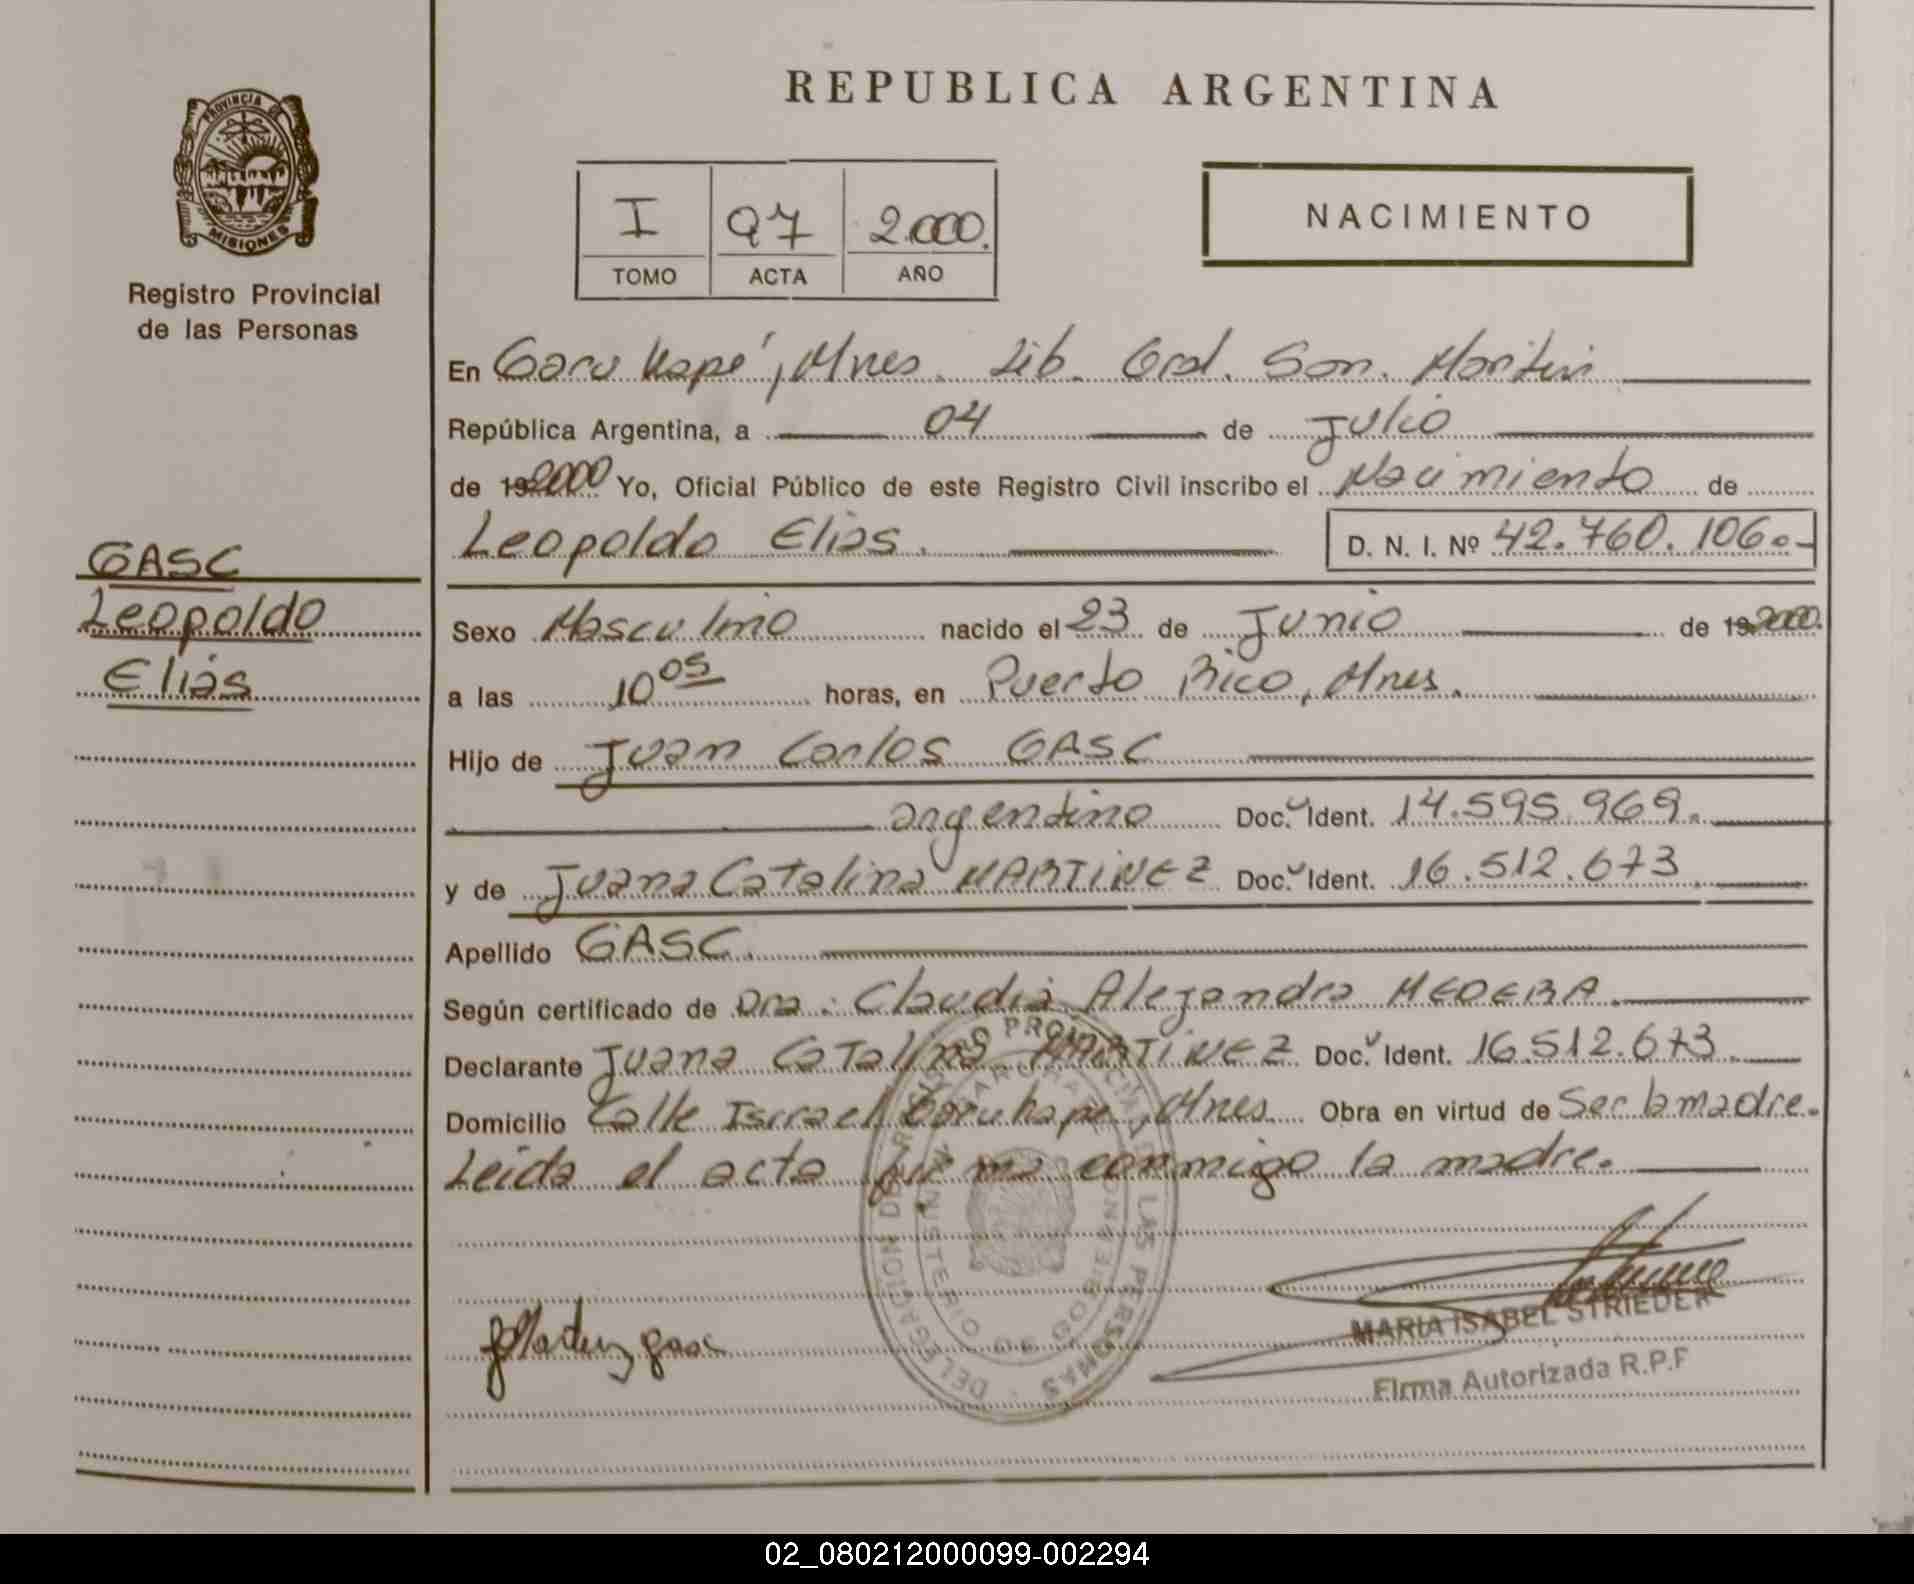 REPUBLICA ARGENTINA
PROVINCIA DE
MISIONES
Registro Provincial
de las Personas
I 97 2.000.
TOMO ACTA AÑO
NACIMIENTO
En Garuhapé, Mnes. Lib. Gral. San. Martin
República Argentina, a 04 de Julio
de 192000 Yo, Oficial Público de este Registro Civil inscribo el Nacimiento de
Leopoldo Elias. D. N. I. Nº 42.760.106.-
GASC
Leopoldo
Eliás
Sexo Masculino nacido el 23 de Junio de 192000.
a las 10 05 horas, en Puerto Rico, Mnes.
Hijo de Juan Carlos GASC
argentino Doc. Ident. 14.595.969.
y de Juana Catalina MARTINEZ Doc. Ident. 16.512.673
Apellido GASC.
Según certificado de Dra. Claudia Alejandra MEDERA.
Declarante Juana Catalina MARTINEZ Doc. Ident. 16.512.673.
Domicilio Calle Isrrael Garuhape, Mnes. Obra en virtud de Ser la madre.
Leida el acta firma conmigo la madre.
DELEGACION DEL REGISTRO PROVINCIAL DE LAS PERSONAS
MINISTERIO DE GOBIERNO
JMartinez gasc
MARIA ISABEL STRIEDER
Firma Autorizada R.P.F
02_080212000099-002294